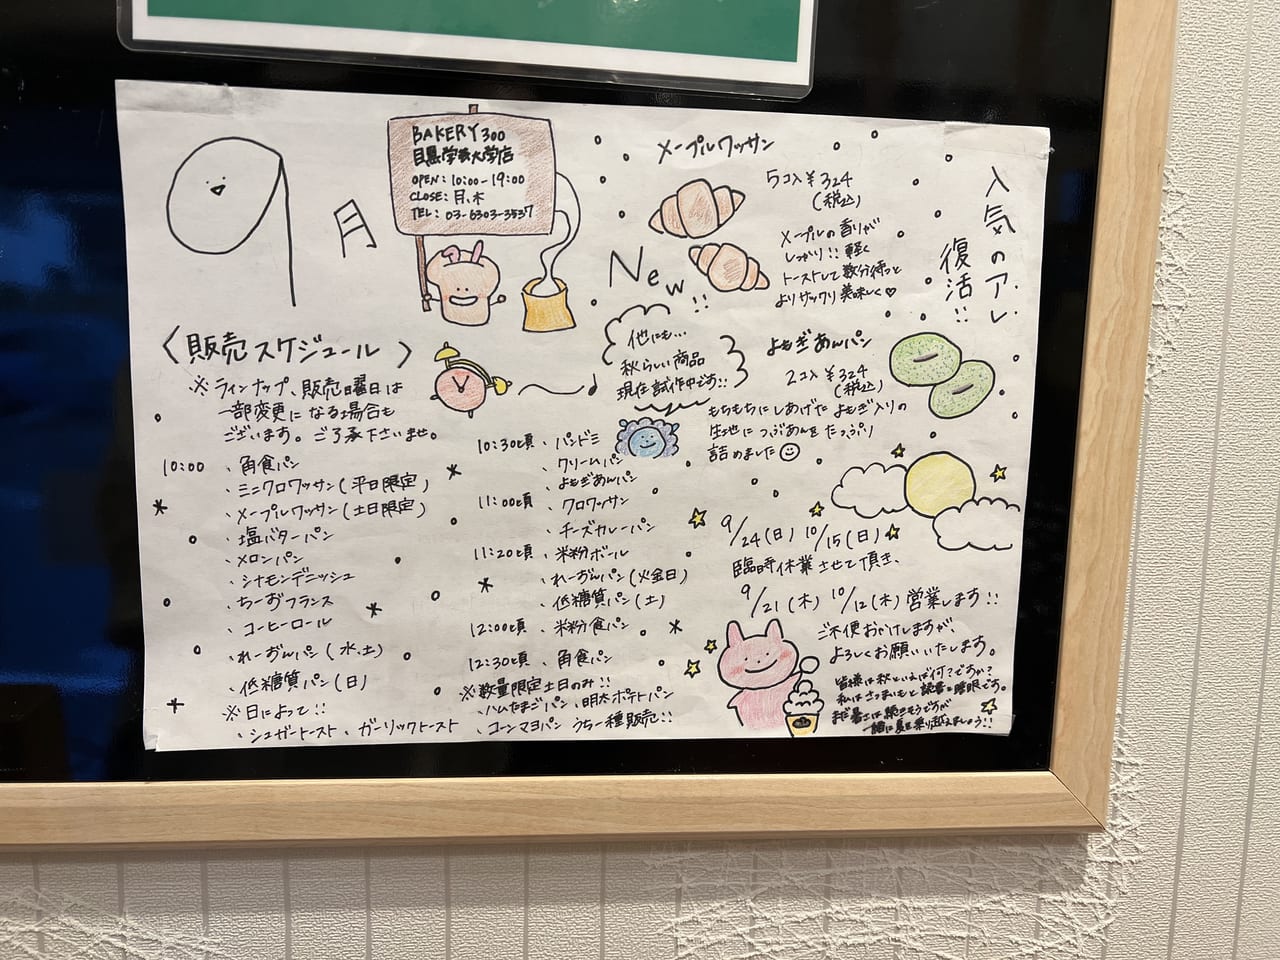 9月
BAKERY300
目黒学芸大学店
OPEN:10:00-19:00
CLOSE:月、木
TEL:03-6303-3537
メープルワッサン
5コ入¥324
(税込)
メープルの香りが
しっかり!!軽く
トーストして数分待つと
よりサックリ美味しく♡
New!!
人気のアレ
復活!!
他にも…
秋らしい商品
現在試作中です!!
よもぎあんパン
2コ入¥324
(税込)
もちもちにしあげたよもぎ入りの
生地につぶあんをたっぷり
詰めました
〈販売スケジュール〉
※ラインナップ、販売曜日は
一部変更になる場合も
ございます。ご了承下さいませ。
10:00、角食パン
、ミニクロワッサン(平日限定)
、メープルワッサン(土日限定)
、塩バターパン
、メロンパン
、シナモンデニッシュ
、ちーずフランス
、コーヒーロール
、れーずんパン(水、土)
、低糖質パン(日)
※日によって!!
、シュガートースト、ガーリックトースト
10:30頃、パンドミ
、クリームパン
、よもぎあんパン
11:00頃、クロワッサン
、チーズカレーパン
11:20頃、米粉ボール
、れーずんパン(火金日)
、低糖質パン(土)
12:00頃、米粉食パン
12:30頃、角食パン
※数量限定土日のみ!!
、ハムたまごパン、明太ポテトパン
、コーンマヨパン うち一種販売!!
9/24(日) 10/15(日)
臨時休業させて頂き、
9/21(木) 10/12(木)営業します!!
ご不便おかけしますが、
よろしくお願いいたします。
皆様は秋といえば何?ですか?
私はさつまいもと読書と睡眠です。
まだ暑さは続きそうですが
一緒に夏を乗り越えましょう!!